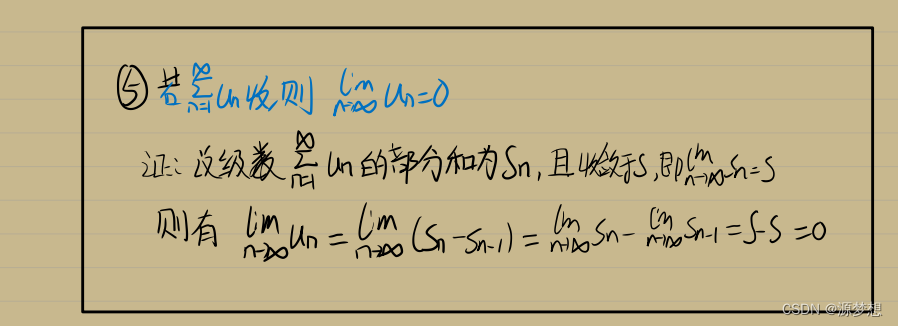 ⑤ 若∑_{n=1}^{∞} u_n 收则 lim_{n→∞} u_n=0
证: 设级数 ∑_{n=1}^{∞} u_n 的部分和为 S_n, 且收敛于S, 即 lim_{n→∞} S_n=S
则有 lim_{n→∞} u_n = lim_{n→∞} (S_n-S_{n-1}) = lim_{n→∞} S_n - lim_{n→∞} S_{n-1} = S-S =0
CSDN @源梦想